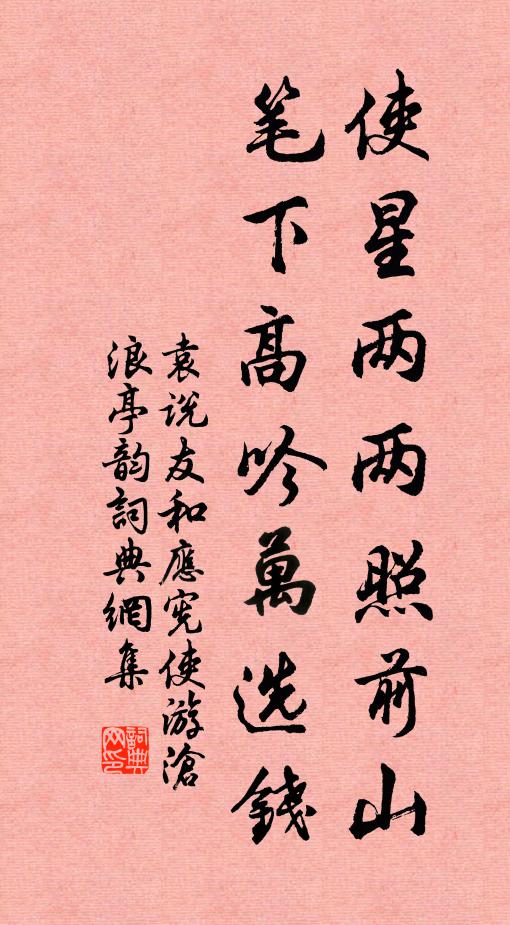 使星两两照前山
笔下高吟萬选錢
袁说友和應宪使游滄
浪亭韵詞典網集
詞典
网印